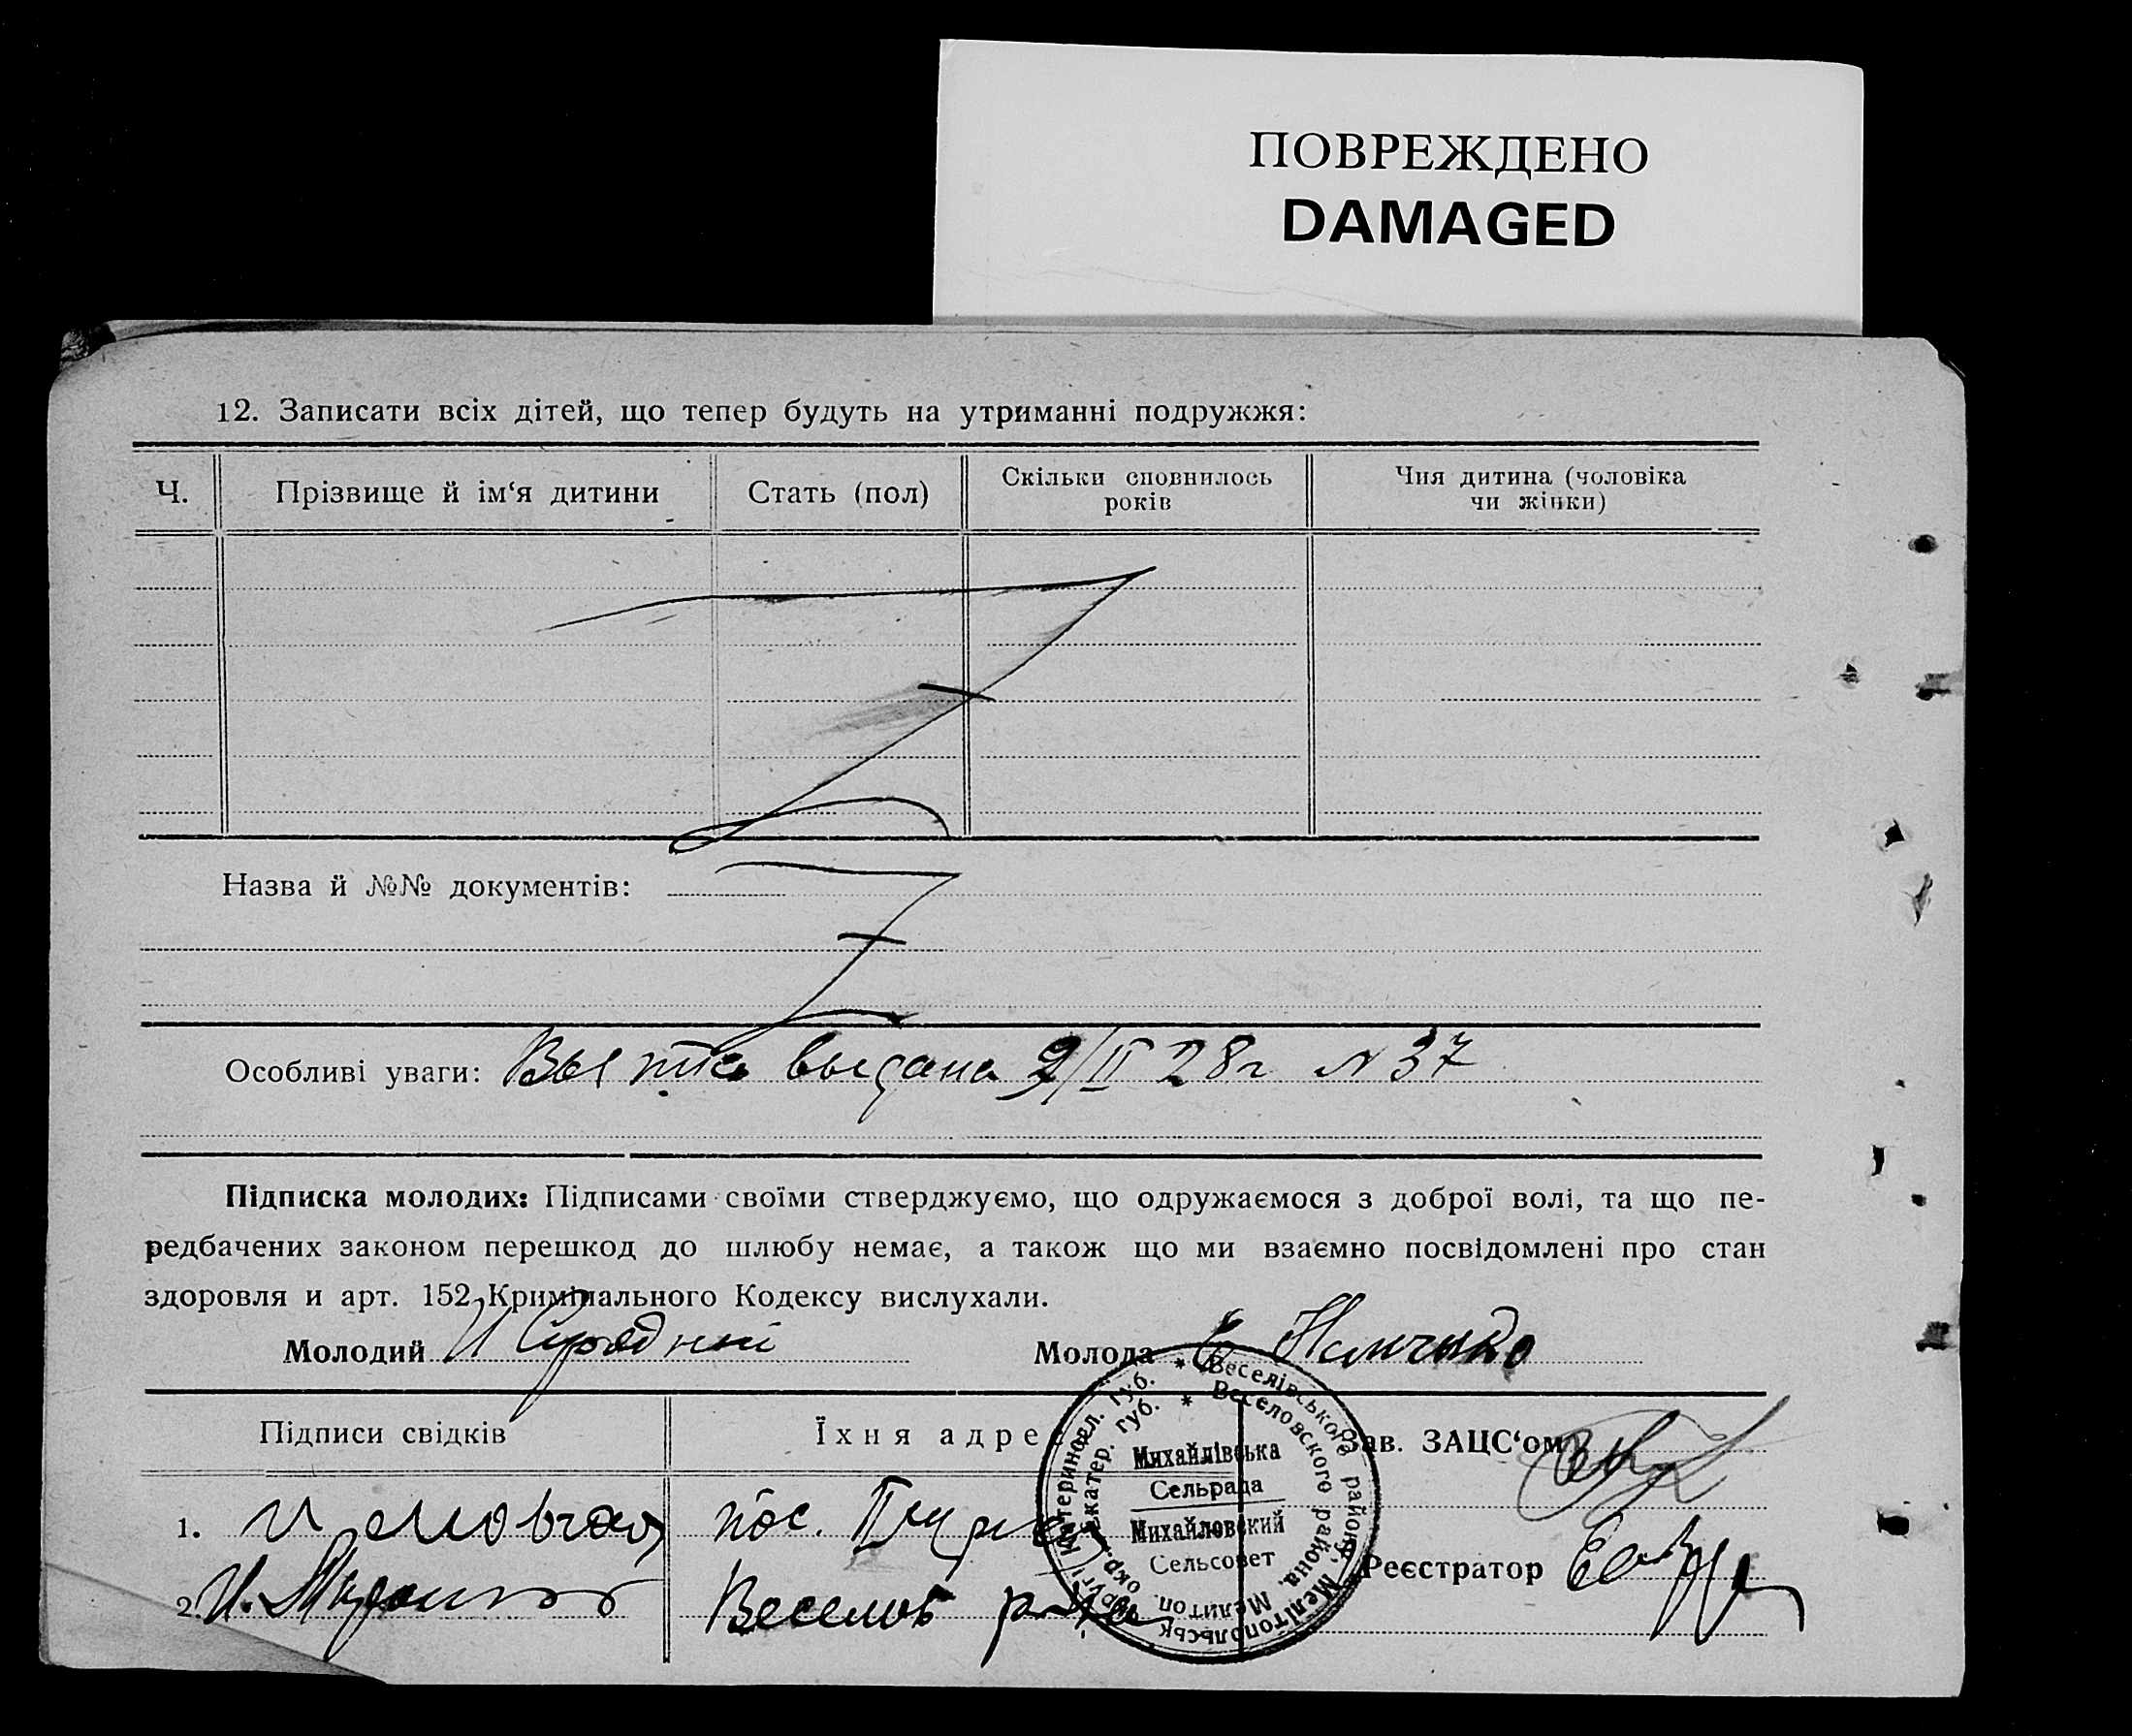 ПОВРЕЖДЕНО
DAMAGED
12. Записати всіх дітей, що тепер будуть на утриманні подружжя:
Ч. Прізвище й ім‘я дитини Стать (пол) Скільки сповнилось років Чия дитина (чоловіка чи жінки)
Назва й №№ документів:
Особливі уваги: выдана 9/II 28 г N 37
Підписка молодих: Підписами своїми стверджуємо, що одружаємося з доброї волі, та що пе-
редбачених законом перешкод до шлюбу немає, а також що ми взаємно посвідомлені про стан
здоровля и арт. 152 Кримінального Кодексу вислухали.
Молодий И
Молода
Підписи свідків Їхня адре Зав. ЗАЦС‘ом
1. пос.
2. И. Весели
Реєстратор
Катериносл. губ. * Веселівського району, Мелітопольськ округі
Екатер. губ. * Веселовского района, Мелитоп. окр.
Михайлівська
Сельрада
Михайловский
Сельсовет